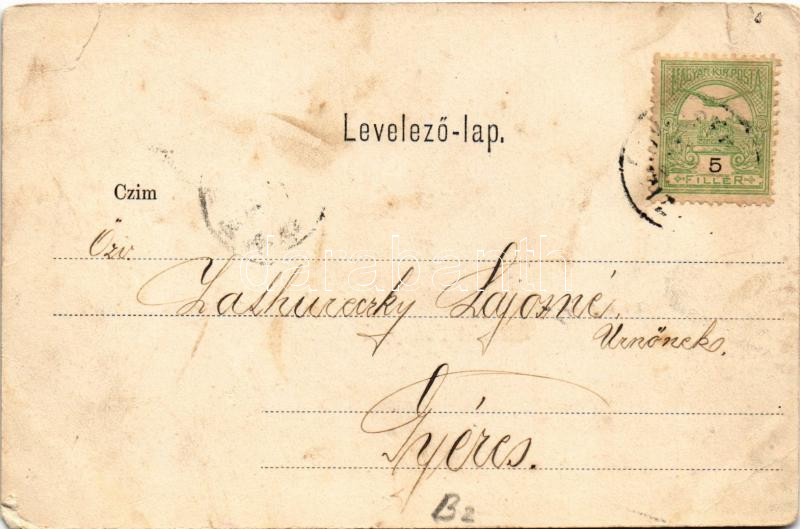 MAGYAR KIR. POSTA
5
FILLÉR
Levelező-lap.
Czim
Özv.
Zathureczky Lajosné
Urnőnek.
Gyéres.
B2
darabanth